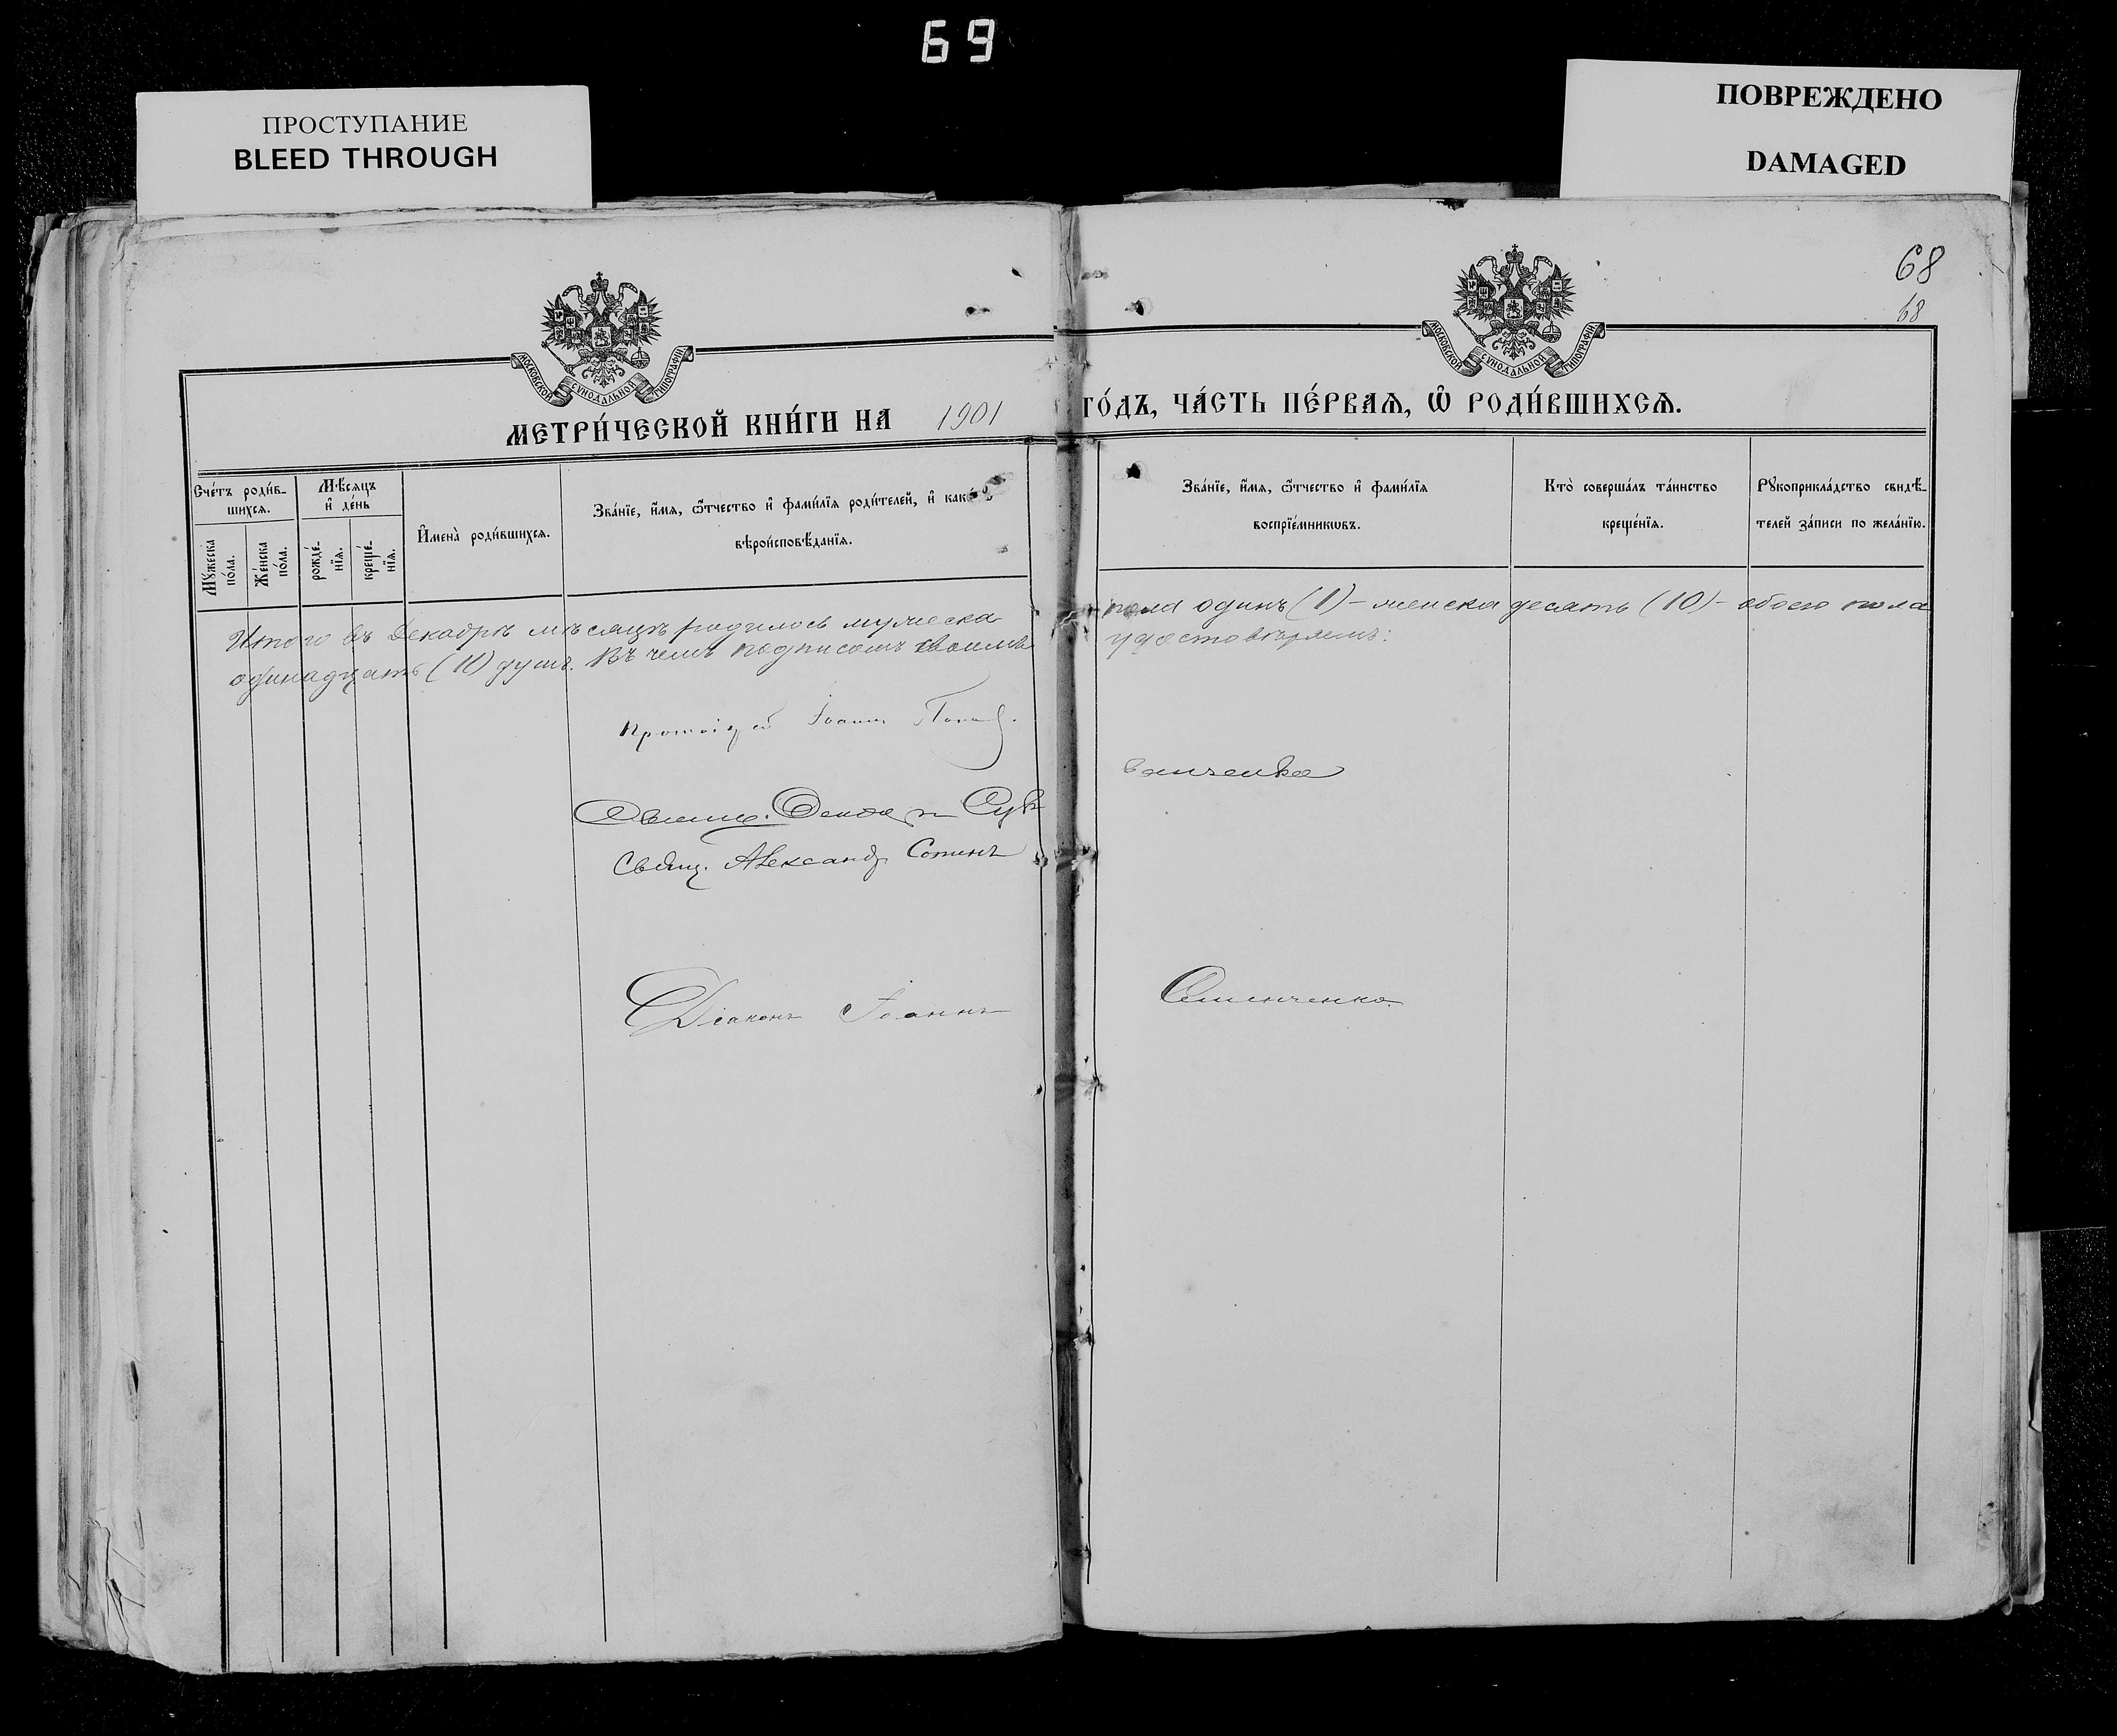 69
ПРОСТУПАНИЕ
BLEED THROUGH
ПОВРЕЖДЕНО
DAMAGED
68
68
МОСКОВСКОЙ СѴНОДАЛЬНОЙ ТИПОГРАФІИ
МОСКОВСКОЙ СѴНОДАЛЬНОЙ ТИПОГРАФІИ
МЕТРИ́ЧЕСКОЙ КНИ́ГИ НА 1901 ГО́ДЪ, ЧА́СТЬ ПЕ́РВАѦ, Ѡ҆ РОДИ́ВШИХСѦ.
Сче́тъ роди́в-
шихсѧ.
Мꙋ́жеска
по́ла.
Же́нска
по́ла.
Мѣ́сѧцъ
и҆ де́нь
рожде́-
нїѧ.
креще́-
нїѧ.
И҆мена̀ роди́вшихсѧ.
Зва́нїе, и҆́мѧ, ѻ҆́тчество и҆ фами́лїѧ роди́телей, и҆ како́й
вѣроисповѣ́данїѧ.
Зва́нїе, и҆́мѧ, ѻ҆́тчество и҆ фами́лїѧ
воспрїе́мникѡвъ.
Кто̀ соверша́лъ та́инство
креще́нїѧ.
Рꙋкоприкла́дство свидѣ́-
телей за́писи по жела́нїю.
Итого въ Декабрѣ мѣсяцѣ родилось мужеска пола одинъ (1) – женска десять (10) – обоего пола
одинадцать (11) душъ. Въ чемъ подписомъ своимъ удостовѣряемъ:
Протоіерей Іоаннъ Попов.
Священ.
Свящ. Александр Сопинъ
Діаконъ Іоаннъ Семенченко.